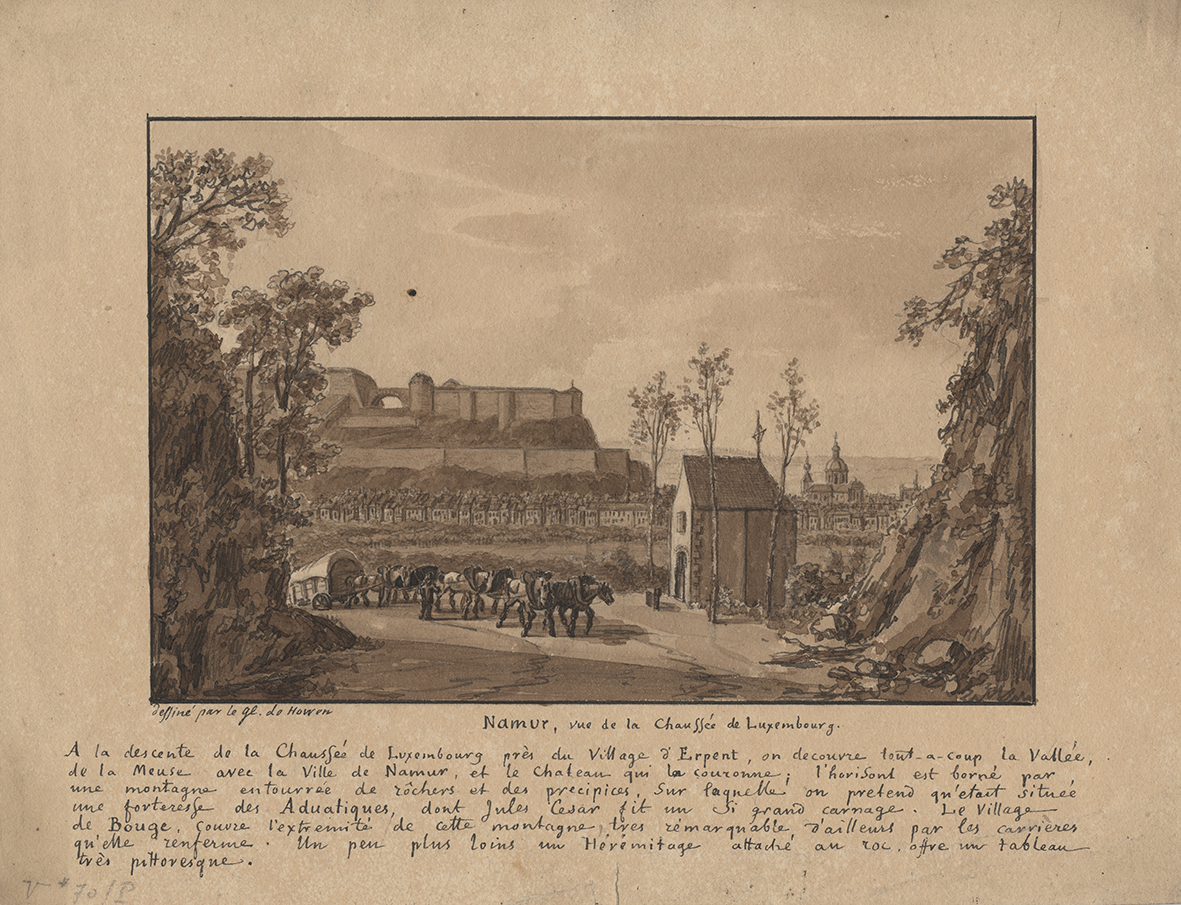 dessiné par le gl. de Howen
Namur, vue de la Chaussée de Luxembourg.
A la descente de la Chaussée de Luxembourg près du Village d'Erpent, on decouvre tout-a-coup la Vallée,
de la Meuse avec la Ville de Namur, et le Chateau qui la couronne; l'horisont est borné par
une montagne entourrée de rôchers et des precipices, Sur laquelle on pretend qu'etait située
une forteresse des Aduatiques, dont Jules Cesar fit un Si grand carnage. Le Village
de Bouge, couvre l'extremité de cette montagne, tres rémarquable d'ailleurs par les carrières
qu'elle renferme. Un peu plus loins un Hérémitage attaché au roc, offre un tableau
très pittoresque.